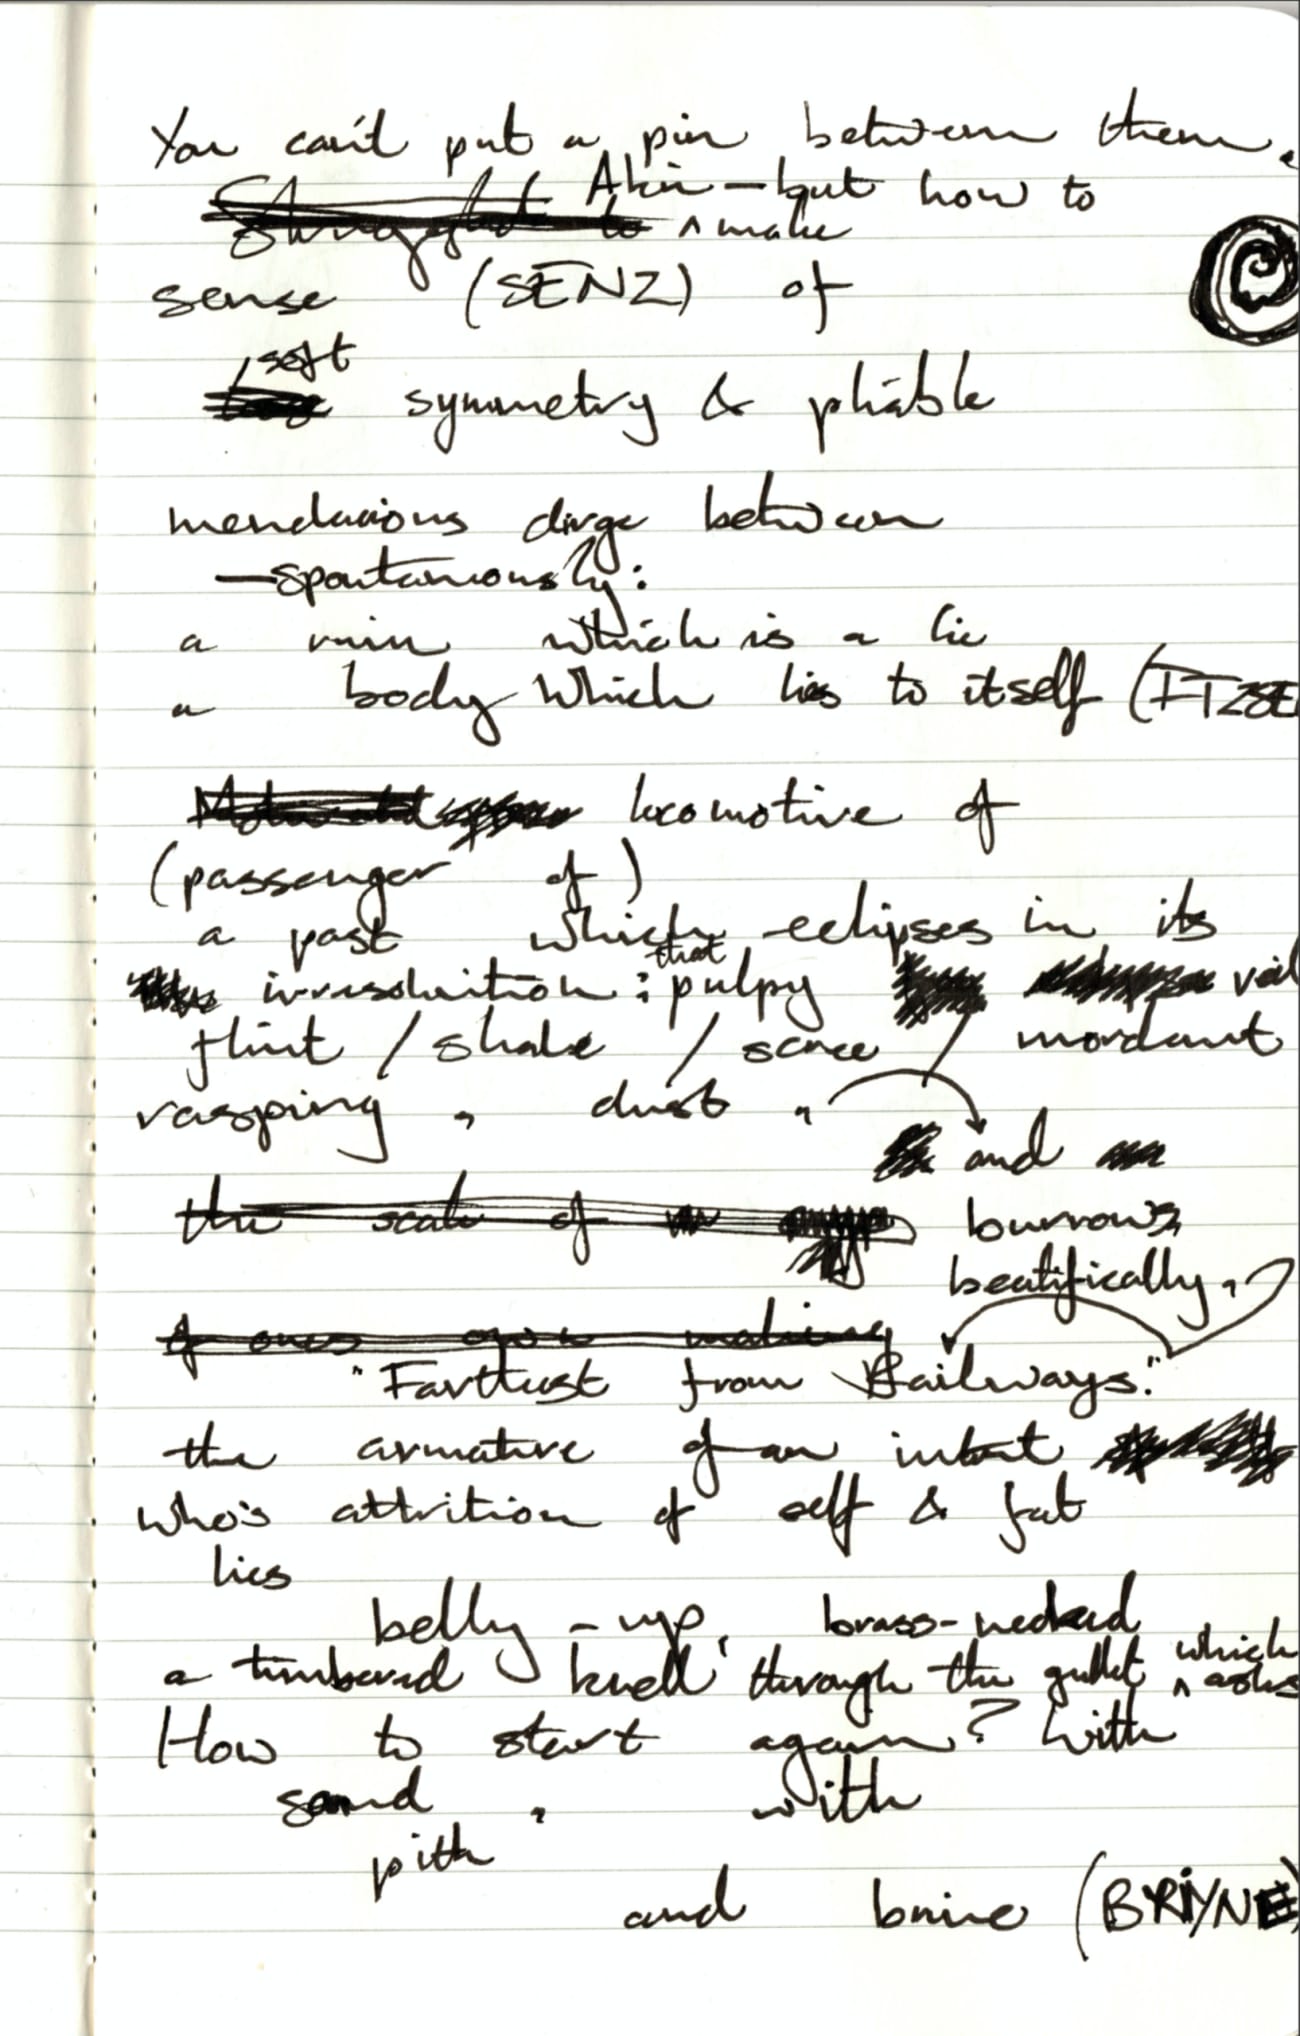 You can't put a pin between them.
Akin – but how to
Struggled to ^ make
sense (SENZ) of
soft
symmetry & pliable
mendacious dirge between
– spontaneously:
a ruin which is a lie
a body which lies to itself (ITZSE
locomotive of
(passenger of)
a past which eclipses in its
irresolution: that pulpy veil
flint / shale / scree / mordant
rasping, dust,
and
the scale of burrows,
beatifically,
of ones own making
"Farthest from Railways."
the armature of an intent
who's attrition of self & fat
lies
belly-up, brass-necked
a timbered knell through the gullet ^ which asks
How to start again? With
sand, with
pith
and brine (BRIYNE